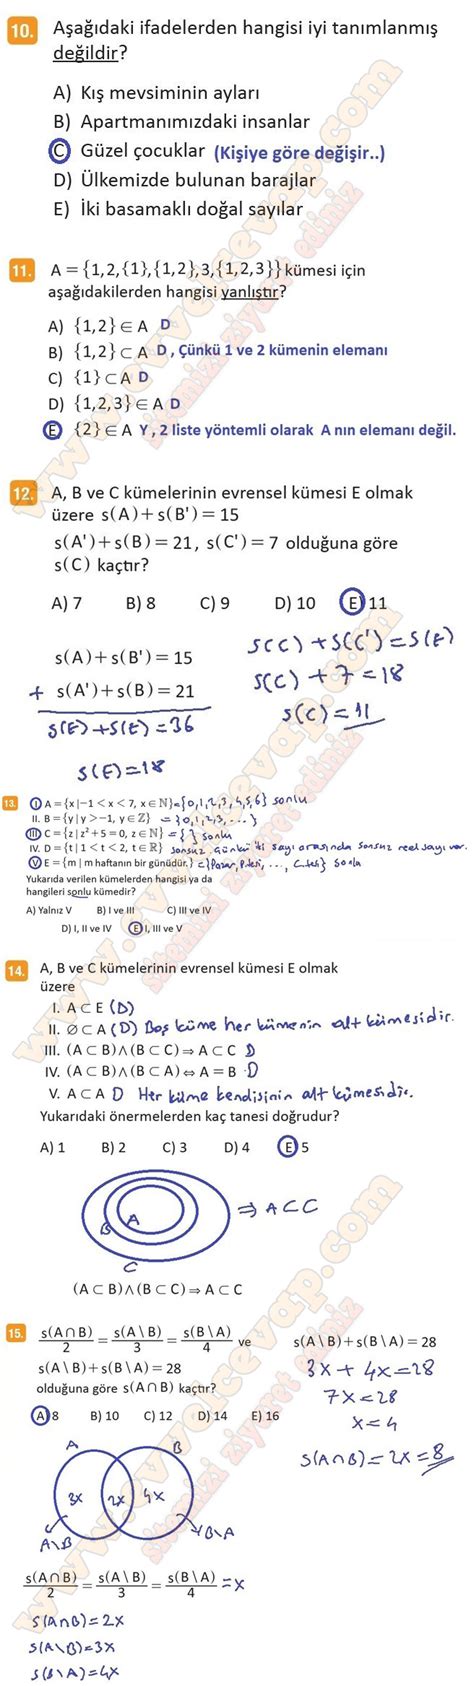 10. Aşağıdaki ifadelerden hangisi iyi tanımlanmış
değildir?
A) Kış mevsiminin ayları
B) Apartmanımızdaki insanlar
C) Güzel çocuklar (Kişiye göre değişir..)
D) Ülkemizde bulunan barajlar
E) İki basamaklı doğal sayılar
11. A = {1,2,{1},{1,2},3,{1,2,3}} kümesi için
aşağıdakilerden hangisi yanlıştır?
A) {1,2} ∈ A D
B) {1,2} ⊂ A D , Çünkü 1 ve 2 kümenin elemanı
C) {1} ⊂ A D
D) {1,2,3} ∈ A D
E) {2} ∈ A Y , 2 liste yöntemli olarak A nın elemanı değil.
12. A, B ve C kümelerinin evrensel kümesi E olmak
üzere s(A) + s(B') = 15
s(A') + s(B) = 21, s(C') = 7 olduğuna göre
s(C) kaçtır?
A) 7 B) 8 C) 9 D) 10 E) 11
s(A) + s(B') = 15
+ s(A') + s(B) = 21
s(E) + s(E) = 36
s(E) = 18
s(C) + s(C') = s(E)
s(C) + 7 = 18
s(C) = 11
13. I A = {x | −1 < x < 7, x ∈ ℕ} = {0,1,2,3,4,5,6} sonlu
II. B = {y | y > −1, y ∈ ℤ} = {0,1,2,3, ...}
III C = {z | z² + 5 = 0, z ∈ ℕ} = { } sonlu
IV. D = {t | 1 < t < 2, t ∈ ℝ} sonsuz Günkü iki sayı arasında sonsuz reel sayı var.
V E = {m | m haftanın bir günüdür.} = {Pazar, P.tesi, ..., C.tesi} Sonlu
Yukarıda verilen kümelerden hangisi ya da
hangileri sonlu kümedir?
A) Yalnız V B) I ve III C) III ve IV
D) I, II ve IV E) I, III ve V
14. A, B ve C kümelerinin evrensel kümesi E olmak
üzere
I. A ⊂ E (D)
II. ∅ ⊂ A (D) Boş küme her kümenin alt kümesidir.
III. (A ⊂ B) ∧ (B ⊂ C) ⇒ A ⊂ C D
IV. (A ⊂ B) ∧ (B ⊂ A) ⇔ A = B D
V. A ⊂ A D Her küme kendisinin alt kümesidir.
Yukarıdaki önermelerden kaç tanesi doğrudur?
A) 1 B) 2 C) 3 D) 4 E) 5
A B C ⇒ A ⊂ C
(A ⊂ B) ∧ (B ⊂ C) ⇒ A ⊂ C
15. s(A∩B)/2 = s(A\B)/3 = s(B\A)/4 ve
s(A\B) + s(B\A) = 28
olduğuna göre s(A∩B) kaçtır?
A) 8 B) 10 C) 12 D) 14 E) 16
s(A\B) + s(B\A) = 28
3x + 4x = 28
7x = 28
x = 4
s(A∩B) = 2x = 8
A B
3x 2x 4x
A\B B\A
s(A∩B)/2 = s(A\B)/3 = s(B\A)/4 = x
s(A∩B) = 2x
s(A\B) = 3x
s(B\A) = 4x
www.evvelcevap.com
sitemizi ziyaret ediniz
www.evvelcevap.com
sitemizi ziyaret ediniz
www.evvelcevap.com
sitemizi ziyaret ediniz